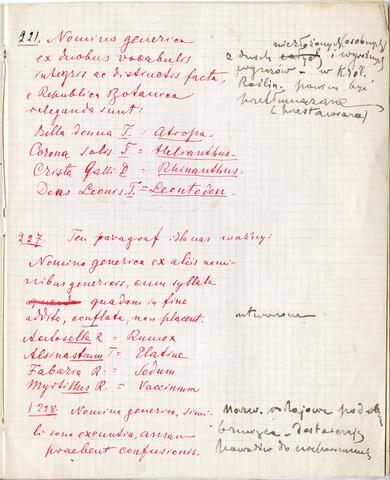 221. Nomina generica
ex duobus vocabulis
integris ac distinctis facta,
e Republica Botanica
releganda sunt:
Bella donna T. = Atropa.
Corona solis T = Helianthus.
Crista Galli D = Rhinanthus.
Dens Leonis T = Leontodon.
z dwóch i wyraźnych
wyrazów - w Król.
Roślin. powinny być
227. Ten paragraf dla nas ważny:
Nomina generica ex aliis nomi-
nibus generices, cum syllaba
quadam in fine
addita, conflata, non placent.
utworzone
Acetosella R = Rumex
Alsinastrum T = Elatine
Fabaria R. = Sedum
Myrtillus R. = Vaccinium
228. Nomina generica, simi-
li sono exeuntia, ansam
praebent confusionis.
Nazw. rodzajowe podob.
dostarczają